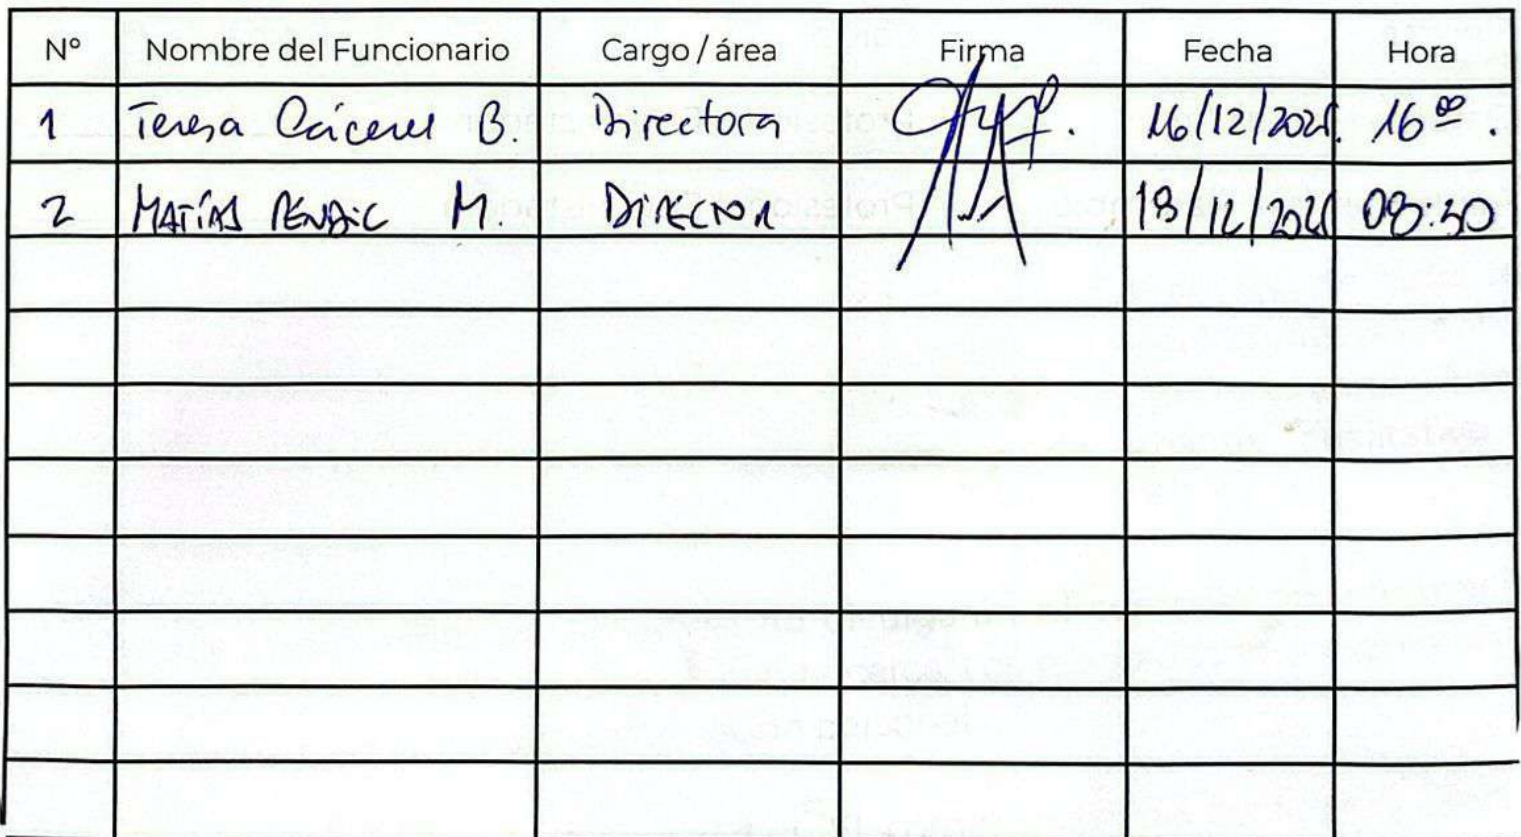 Nº Nombre del Funcionario Cargo / área Firma Fecha Hora
1 Teresa Cáceres B. Directora 16/12/2021. 16ºº.
2 MATÍAS M. DIRECTOR